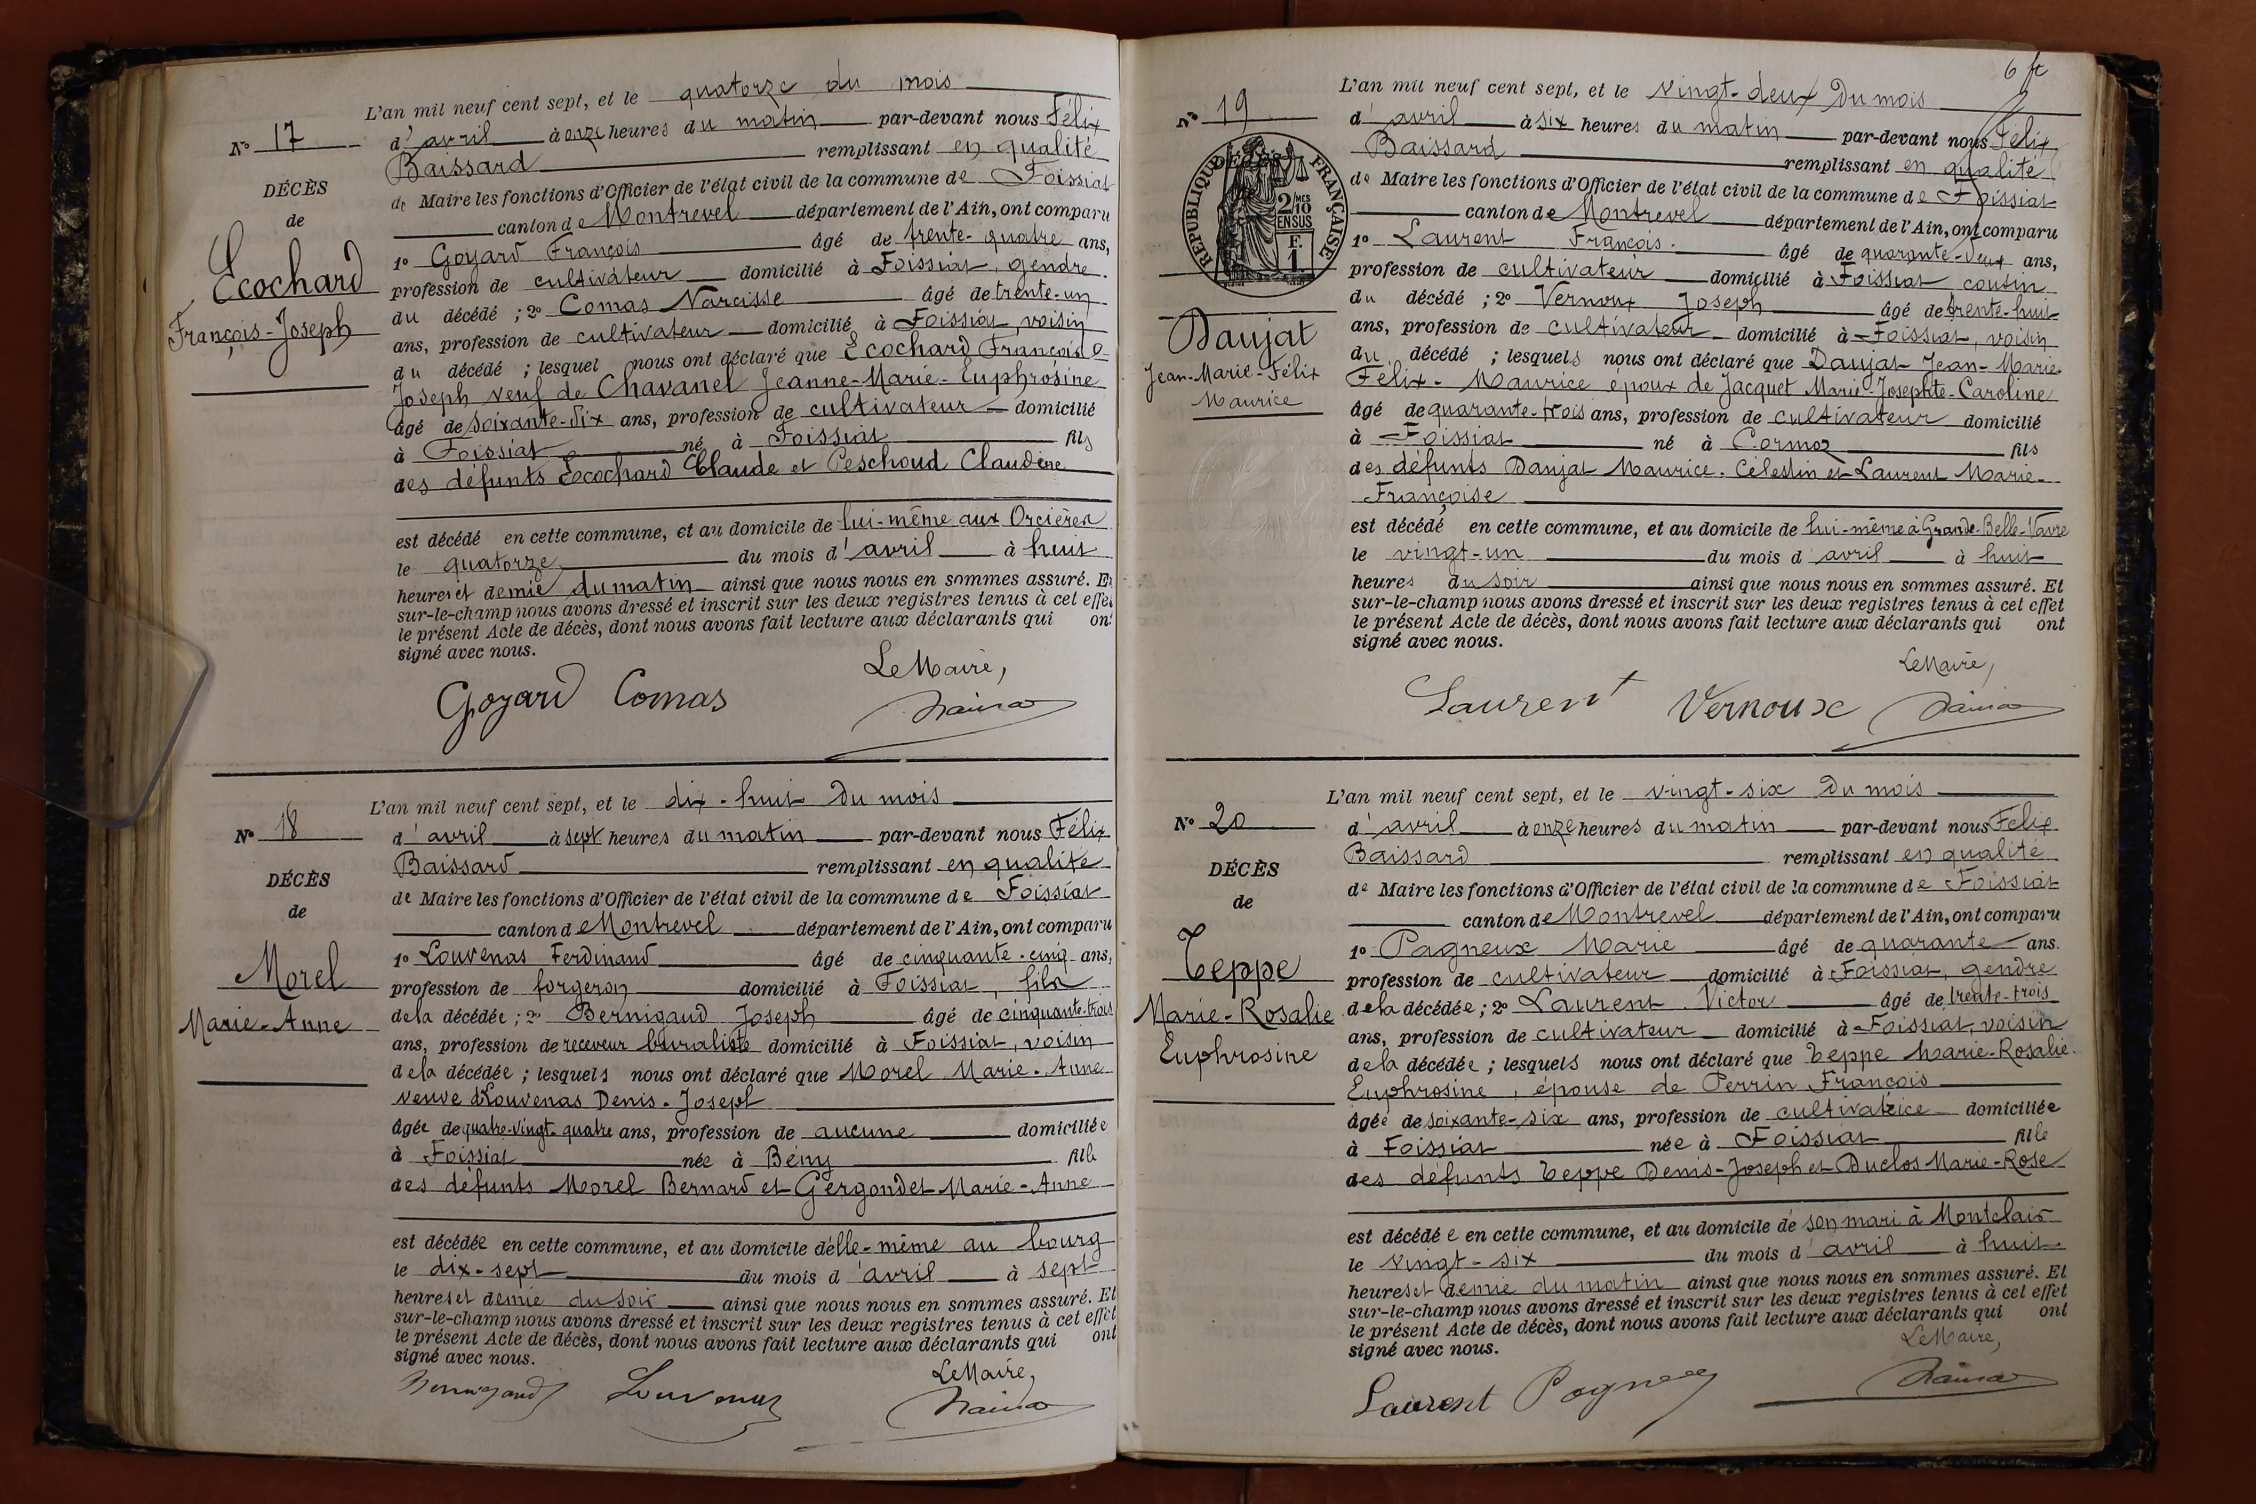 L'an mil neuf cent sept, et le quatorze du mois
N° 17
d'avril à onze heures du matin par-devant nous Félix
Baissard remplissant en qualité
DÉCÈS
de Maire les fonctions d'Officier de l'état civil de la commune de Foissiat
de
canton de Montrevel département de l'Ain, ont comparu
1° Goyard François âgé de trente-quatre ans,
Ecochard
profession de cultivateur domicilié à Foissiat, gendre
François-Joseph
du décédé ; 2° Comas Narcisse âgé de trente-un
ans, profession de cultivateur domicilié à Foissiat, voisin
du décédé ; lesquel nous ont déclaré que Ecochard François
Joseph veuf de Chavanel Jeanne-Marie-Euphrosine
âgé de soixante-dix ans, profession de cultivateur domicilié
à Foissiat né à Foissiat fils
des défunts Ecochard Claude et Peschoud Claudine
est décédé en cette commune, et au domicile de lui-même aux Orcières
le quatorze du mois d'avril à huit
heures et demie du matin ainsi que nous nous en sommes assuré. Et
sur-le-champ nous avons dressé et inscrit sur les deux registres tenus à cet effet
le présent Acte de décès, dont nous avons fait lecture aux déclarants qui ont
signé avec nous.
Le Maire,
Goyard Comas
L'an mil neuf cent sept, et le dix-huit du mois
N° 18
d'avril à sept heures du matin par-devant nous Félix
Baissard remplissant en qualité
DÉCÈS
de Maire les fonctions d'Officier de l'état civil de la commune de Foissiat
de
canton de Montrevel département de l'Ain, ont comparu
1° Louvenas Ferdinand âgé de cinquante-cinq ans,
Morel
profession de forgeron domicilié à Foissiat, fils
Marie-Anne
de la décédée ; 2° Bernigaud Joseph âgé de cinquante-trois
ans, profession de receveur buraliste domicilié à Foissiat, voisin
de la décédée ; lesquels nous ont déclaré que Morel Marie-Anne
veuve de Louvenas Denis-Joseph
âgée de quatre-vingt-quatre ans, profession de aucune domiciliée
à Foissiat née à Bény fille
des défunts Morel Bernard et Gergondet Marie-Anne
est décédée en cette commune, et au domicile d'elle-même au bourg
le dix-sept du mois d'avril à sept
heures et demie du soir ainsi que nous nous en sommes assuré. Et
sur-le-champ nous avons dressé et inscrit sur les deux registres tenus à cet effet
le présent Acte de décès, dont nous avons fait lecture aux déclarants qui ont
signé avec nous.
Le Maire,
Bernigaud Louvenas
6
L'an mil neuf cent sept, et le vingt-deux du mois
N° 19
d'avril à six heures du matin par-devant nous Félix
Baissard remplissant en qualité
DÉCÈS
RÉPUBLIQUE FRANÇAISE
2/10 MES
EN SUS
F.
1
de Maire les fonctions d'Officier de l'état civil de la commune de Foissiat
canton de Montrevel département de l'Ain, ont comparu
1° Laurent François. âgé de quarante-deux ans,
profession de cultivateur domicilié à Foissiat cousin
du décédé ; 2° Vernoux Joseph âgé de trente-huit
Daujat
ans, profession de cultivateur domicilié à Foissiat, voisin
Jean-Marie-Félix
du décédé ; lesquels nous ont déclaré que Daujat Jean-Marie-
Maurice
Félix-Maurice époux de Jacquet Marie-Josephte-Caroline
âgé de quarante-trois ans, profession de cultivateur domicilié
à Foissiat né à Cormoz fils
des défunts Daujat Maurice-Célestin et Laurent Marie-
Françoise
est décédé en cette commune, et au domicile de lui-même à Grande-Belle-Vavre
le vingt-un du mois d'avril à huit
heures du soir ainsi que nous nous en sommes assuré. Et
sur-le-champ nous avons dressé et inscrit sur les deux registres tenus à cet effet
le présent Acte de décès, dont nous avons fait lecture aux déclarants qui ont
signé avec nous.
Le Maire,
Laurent Vernoux
L'an mil neuf cent sept, et le vingt-six du mois
N° 20
d'avril à onze heures du matin par-devant nous Félix
Baissard remplissant en qualité
DÉCÈS
de Maire les fonctions d'Officier de l'état civil de la commune de Foissiat
de
canton de Montrevel département de l'Ain, ont comparu
1° Pagneux Marie âgé de quarante ans.
Teppe
profession de cultivateur domicilié à Foissiat, gendre
de la décédée ; 2° Laurent Victor âgé de trente-trois
Marie-Rosalie
ans, profession de cultivateur domicilié à Foissiat, voisin
Euphrosine
de la décédée ; lesquels nous ont déclaré que Teppe Marie-Rosalie
Euphrosine, épouse de Perrin François
âgée de soixante-six ans, profession de cultivatrice domiciliée
à Foissiat née à Foissiat fille
des défunts Teppe Denis-Joseph et Duclos Marie-Rose
est décédée en cette commune, et au domicile de son mari à Montclair
le vingt-six du mois d'avril à huit
heures et demie du matin ainsi que nous nous en sommes assuré. Et
sur-le-champ nous avons dressé et inscrit sur les deux registres tenus à cet effet
le présent Acte de décès, dont nous avons fait lecture aux déclarants qui ont
signé avec nous.
Le Maire,
Laurent Pagneux